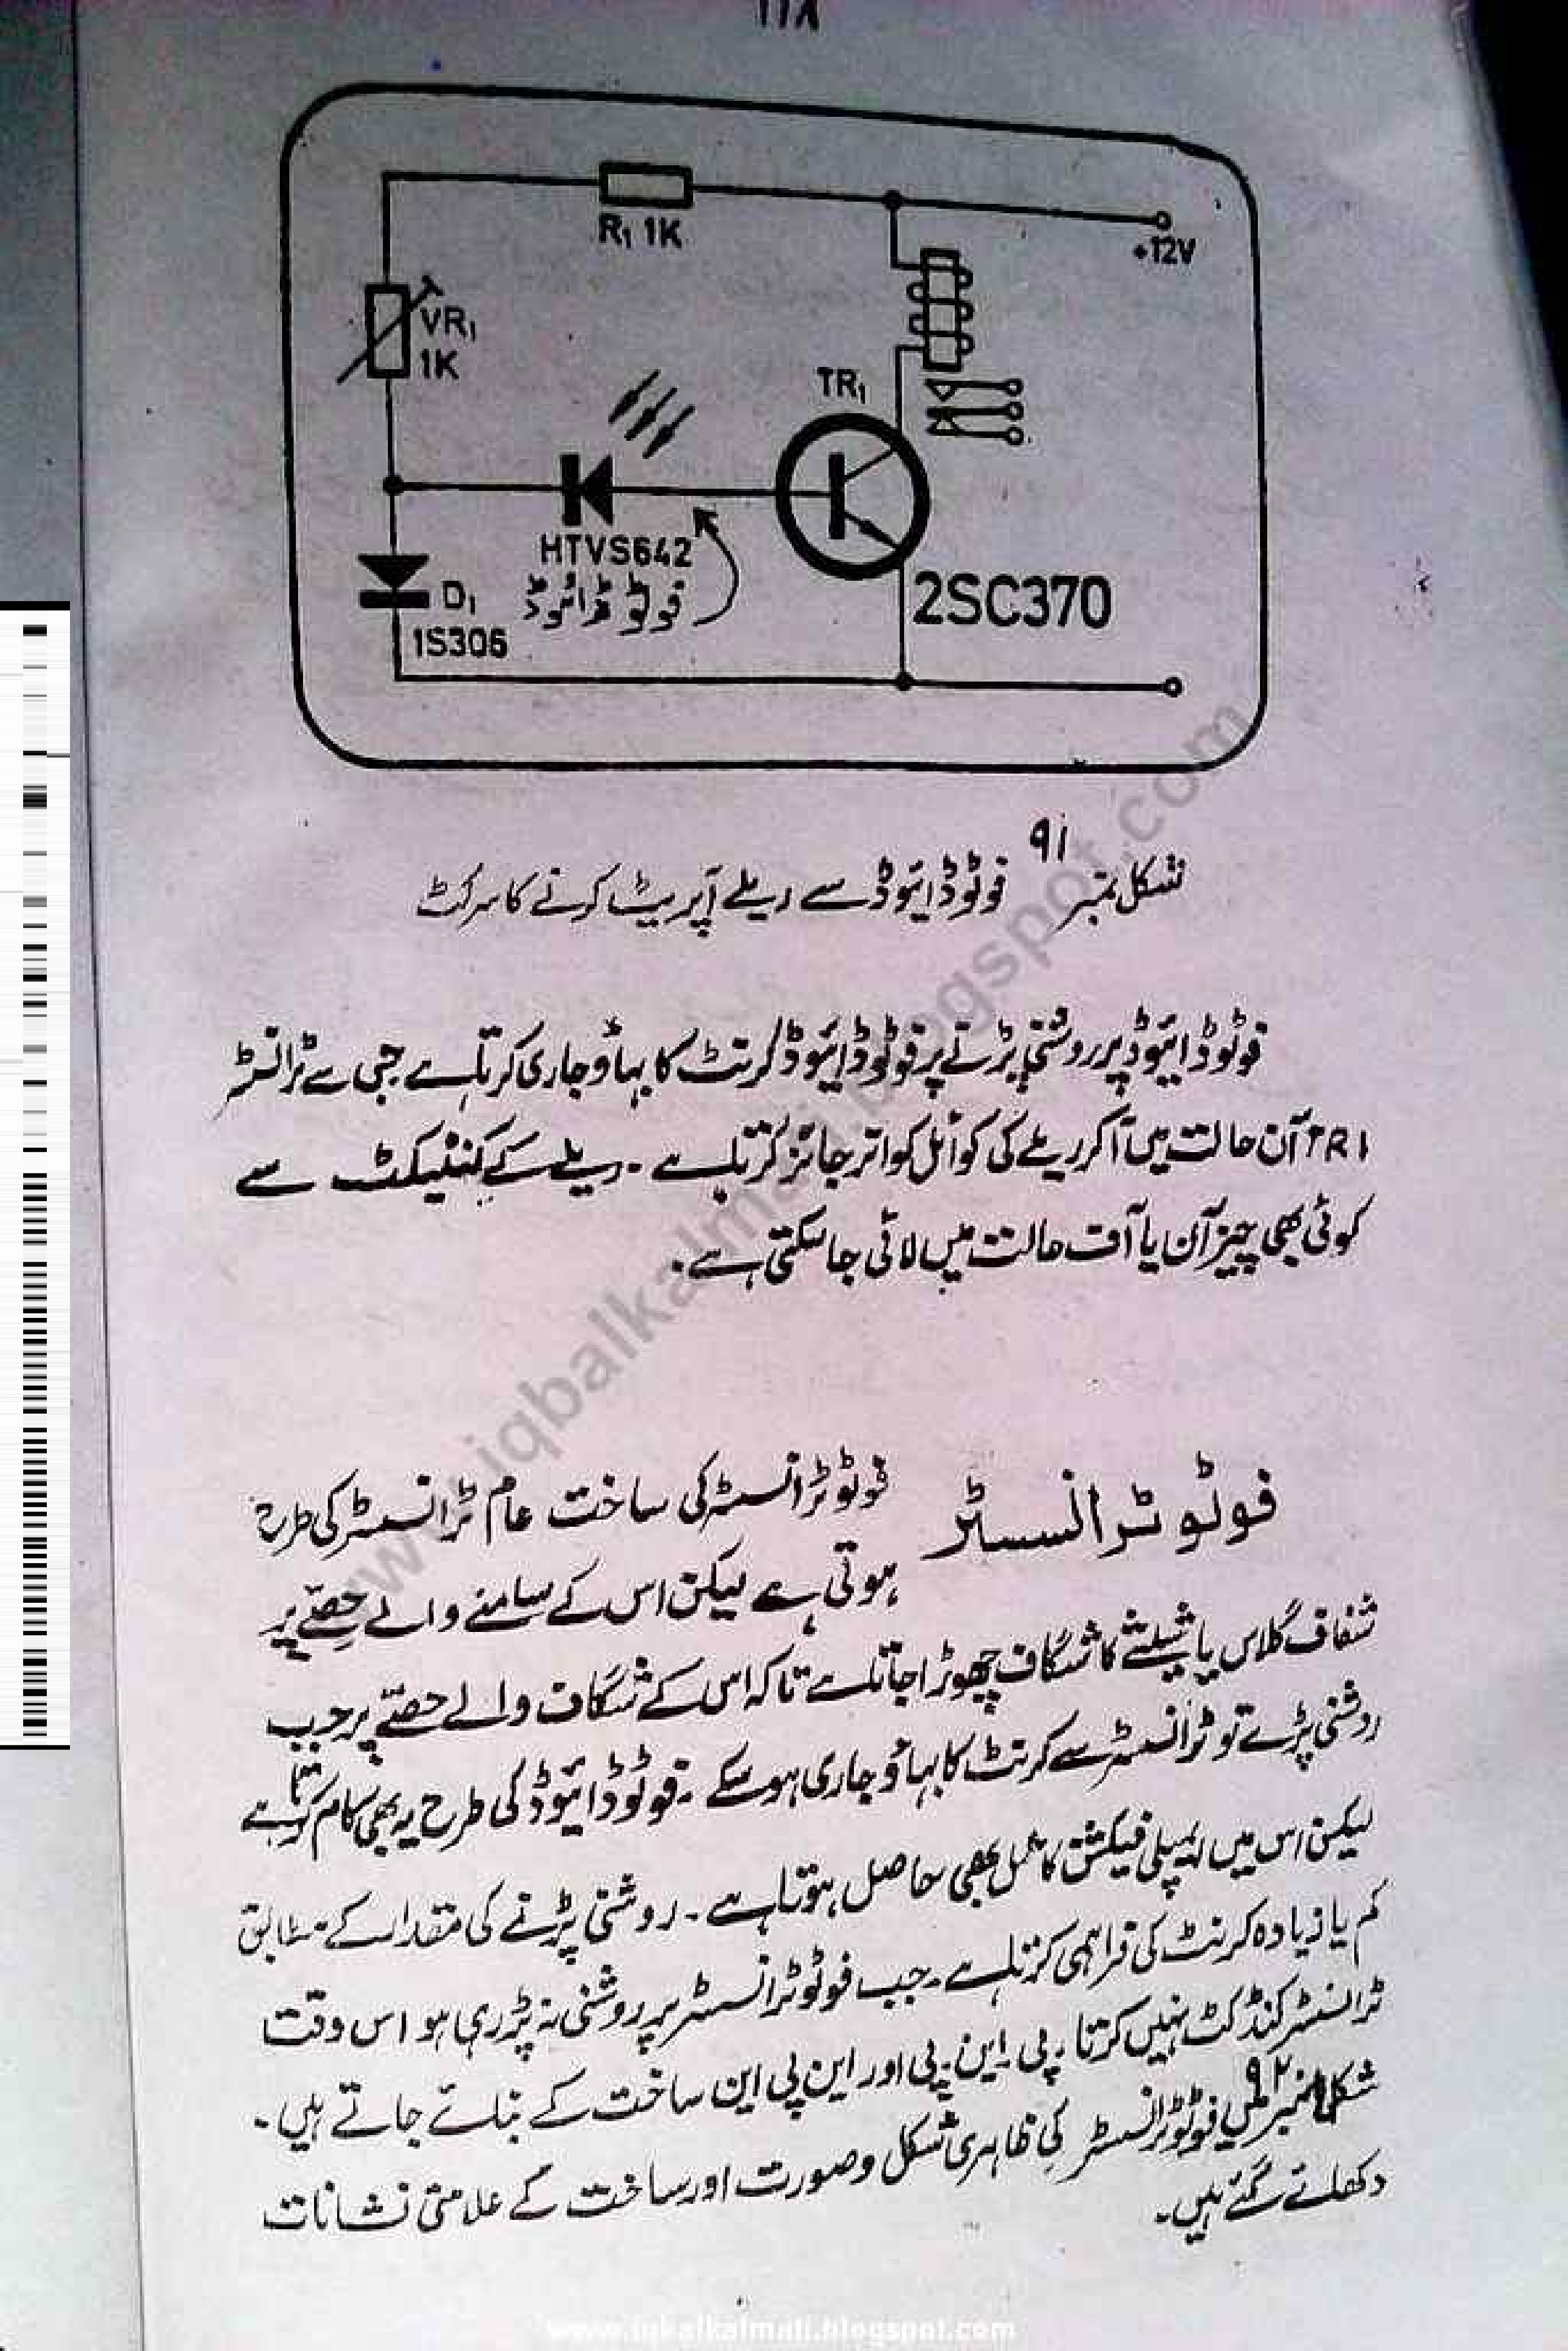 ۱۱۸
R₁ 1K
+12V
VR₁
1K
TR₁
HTVS642
فوٹو ڈائیوڈ
D₁
1S306
2SC370
شکل نمبر ۹۱ فوٹو ڈائیوڈ سے ریلے آپریٹ کرنے کا سرکٹ
فوٹو ڈائیوڈ پر روشنی پڑتے پر فوٹو ڈائیوڈ کرنٹ کا بہاؤ جاری کرتا ہے جس سے ٹرانسسٹر
TR1 آن حالت میں آ کر ریلے کی کوائل کو انرجائز کرتا ہے۔ ریلے کے کنٹیکٹ سے
کوئی بھی چیز آن یا آف حالت میں لائی جا سکتی ہے۔
فوٹو ٹرانسسٹر فوٹو ٹرانسسٹر کی ساخت عام ٹرانسسٹر کی طرح
ہوتی ہے لیکن اس کے سامنے والے حصّے پر
شفاف گلاس یا شیشے کا شگاف چھوڑا جاتا ہے تاکہ اس کے شگاف والے حصّے پر جب
روشنی پڑے تو ٹرانسسٹر سے کرنٹ کا بہاؤ جاری ہو سکے۔ فوٹو ڈائیوڈ کی طرح یہ بھی کام کرتا ہے
لیکن اس میں ایمپلی فیکشن کا عمل بھی حاصل ہوتا ہے۔ روشنی پڑنے کی مقدار کے مطابق
کم یا زیادہ کرنٹ کی فراہمی کرتا ہے۔ جب فوٹو ٹرانسسٹر پر روشنی نہ پڑ رہی ہو اس وقت
ٹرانسسٹر کنڈکٹ نہیں کرتا۔ پی۔ این۔ پی اور این پی این ساخت کے بنائے جاتے ہیں۔
شکل نمبر ۹۲ میں فوٹو ٹرانسسٹر کی ظاہری شکل و صورت اور ساخت کے علامتی نشانات
دکھائے گئے ہیں۔
www.iqbalkalmati.blogspot.com
www.iqbalkalmati.blogspot.com